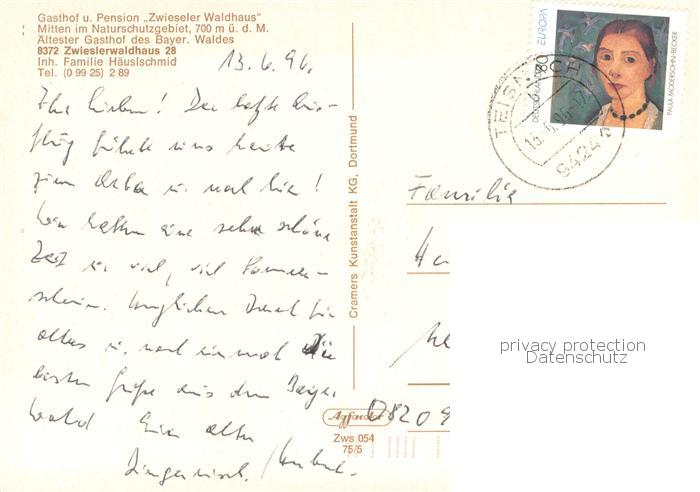 Gasthof u. Pension „Zwieseler Waldhaus"
Mitten im Naturschutzgebiet, 700 m ü. d. M.
Ältester Gasthof des Bayer. Waldes
8372 Zwieslerwaldhaus 28
Inh. Familie Häuslschmid
Tel. (0 99 25) 2 89
13.6.96.
Ihr Lieben! Der letzte Aus-
flug führte uns heute
zum Arber u. nach hier!
Wir hatten eine sehr schöne
Zeit u. viel, viel Sonnen-
schein. Dank für
alles u. noch einmal die
besten Grüße aus dem Bayer
Wald
Cramers Kunstanstalt KG, Dortmund
Agfacolor
Zws 054
75/5
EUROPA
DEUTSCHLAND
80
PAULA MODERSOHN-BECKER
TEISNACH
94244
Familie
privacy protection
Datenschutz
D8209